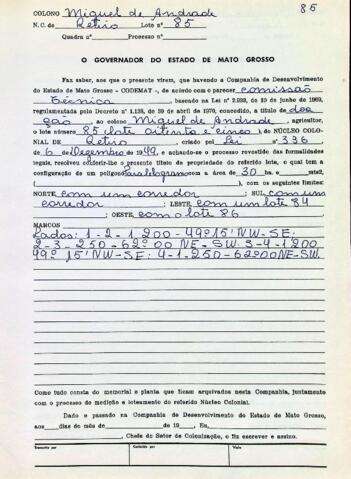 85
COLONO Miguel de Andrade
N.C. de Retiro Lote nº 85
Quadra nº Processo nº
O GOVERNADOR DO ESTADO DE MATO GROSSO
Faz saber, aos que o presente virem, que havendo a Companhia de Desenvolvimento
do Estado de Mato Grosso - CODEMAT -, de acordo com o parecer comissão
Técnica, baseado na Lei nº 2.922, de 10 de junho de 1969,
regulamentada pelo Decreto nº 1.138, de 30 de abril de 1970, concedido, a título de doa
ção, ao colono Miguel de Andrade, agricultor,
o lote número 85 (lote oitenta e cinco) do NÚCLEO COLO-
NIAL DE Retiro, criado pel Lei nº 336
de 6 de Dezembro de 1949, e achando-se o processo revestido das formalidades
legais, resolveu conferir-lhe o presente título de propriedade do referido lote, o qual tem a
configuração de um polígono Paralelogramo com a área de 30 ha. e mts2,
(), com os seguintes limites:
NORTE, com um corredor; SUL, com um
corredor; LESTE, com um lote 84
; OESTE, com o lote 86
MARCOS
Lados: 1-2-1 200-49º15'NW-SE:
2-3-250-62º00 NE-SW. 3-4-1200
49º15'NW-SE: 4-1-250-62º00NE-SW.
Como tudo consta do memorial e planta que ficam arquivados nesta Companhia, juntamente
com o processo de medição e loteamento do referido Núcleo Colonial.
Dado e passado na Companhia de Desenvolvimento do Estado de Mato Grosso,
aos dias do mês de de 19 , Eu,
, Chefe do Setor de Colonização, o fiz escrever e assino.
Transcrito por Conferido por Visto